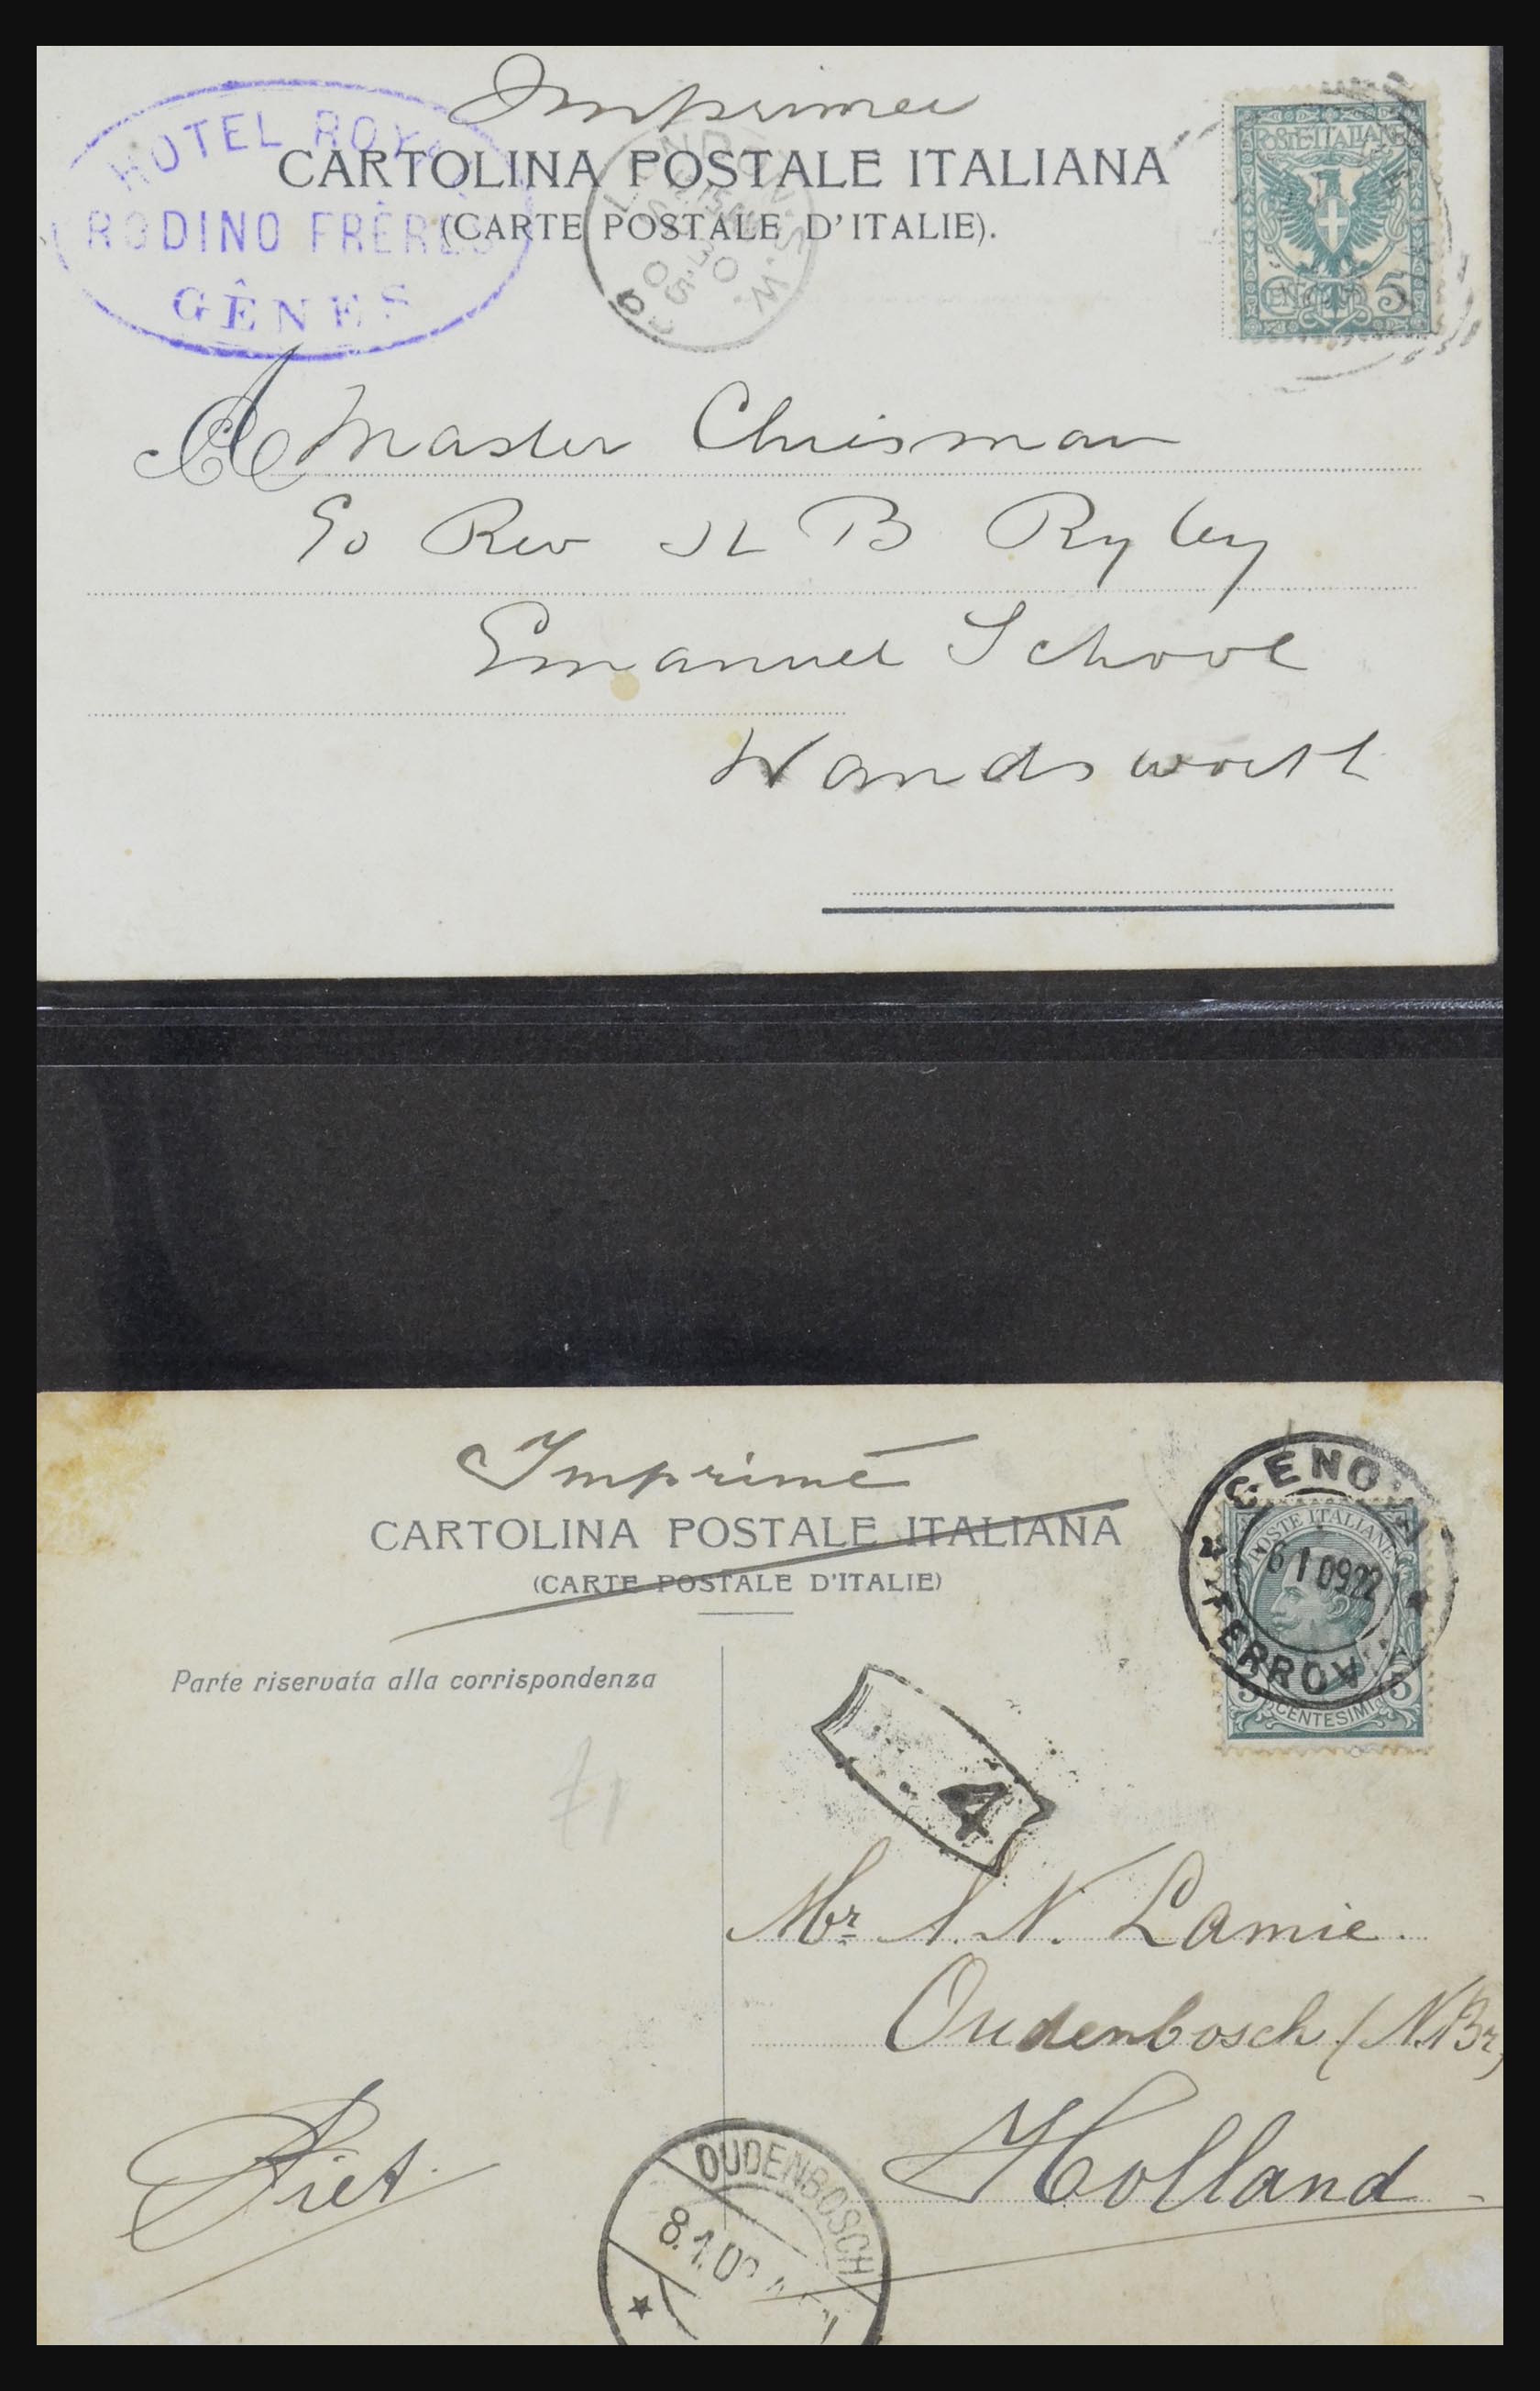 Imprimée
CARTOLINA POSTALE ITALIANA
(CARTE POSTALE D'ITALIE).
HOTEL ROY
RODINO FRÈRES
GÊNES
LONDON. S.W.
05
POSTE ITALIANE
CENT. 5
A Master Chrisman
c/o Rev H B Ryley
Emanuel School
Wandsworth
Imprimé
CARTOLINA POSTALE ITALIANA
(CARTE POSTALE D'ITALIE)
GENOVA
6 1 09 22
FERROVIA
POSTE ITALIANE
5 CENTESIMI 5
Parte riservata alla corrispondenza
71
4
Mr. A. N. Lamie.
Oudenbosch (N.Br)
Holland
Piet.
OUDENBOSCH
8.1.09